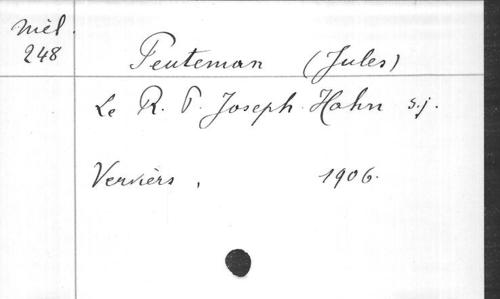 Mél.
248
Peuteman (Jules)
Le R. P. Joseph Hahn s.j.
Verviers, 1906.